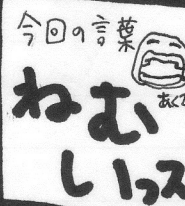 今回の言葉
あくび
ねむ
いっス